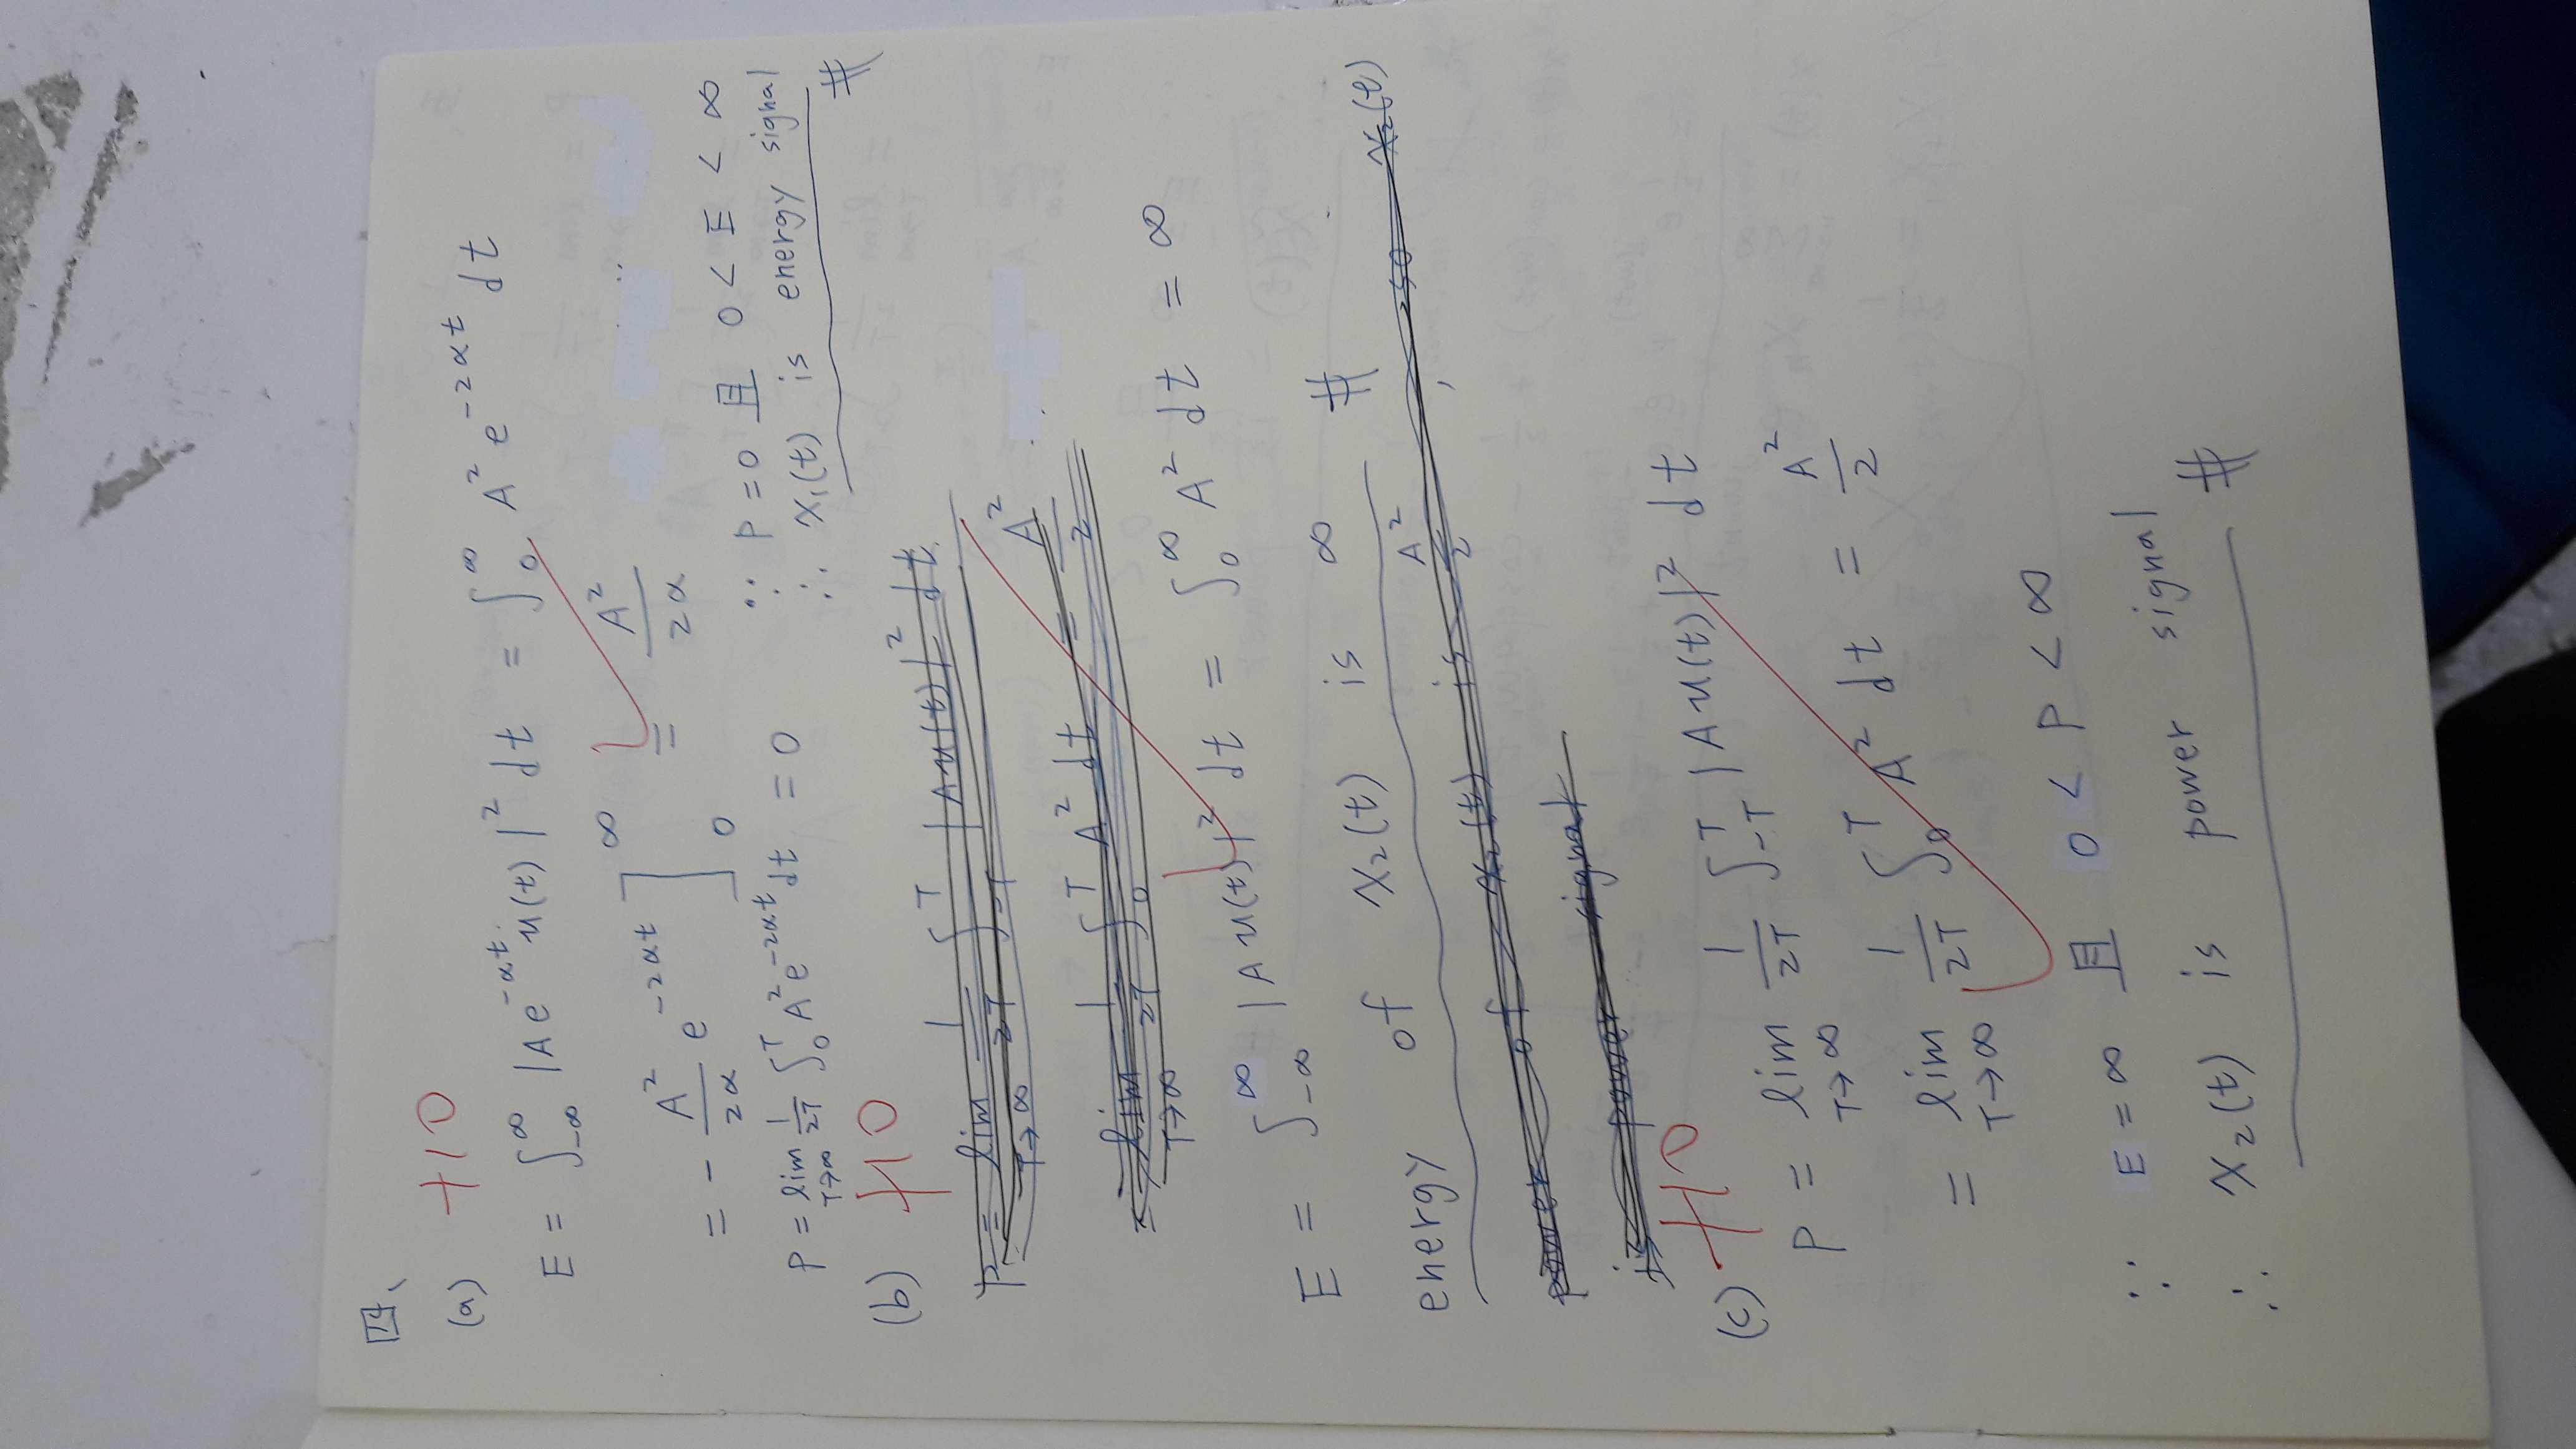 四、
(a) +10
E = ∫_{-∞}^{∞} |A e^{-αt} u(t)|² dt = ∫_0^∞ A² e^{-2αt} dt
= - A²/2α e^{-2αt} ]_0^∞ = A²/2α
P = lim_{T→∞} 1/2T ∫_0^T A² e^{-2αt} dt = 0
∵ P = 0 且 0 < E < ∞
∴ x₁(t) is energy signal #
(b) +10
P = lim_{T→∞} 1/2T ∫_{-T}^T |A u(t)|² dt
= lim_{T→∞} 1/2T ∫_0^T A² dt = A²/2
E = ∫_{-∞}^{∞} |A u(t)|² dt = ∫_0^∞ A² dt = ∞
energy of x₂(t) is ∞ #
power of x₂(t) is A²/2 , so x₂(t)
is power signal
(c) +10
P = lim_{T→∞} 1/2T ∫_{-T}^T |A u(t)|² dt
= lim_{T→∞} 1/2T ∫_0^T A² dt = A²/2
∵ E = ∞ 且 0 < P < ∞
∴ x₂(t) is power signal #